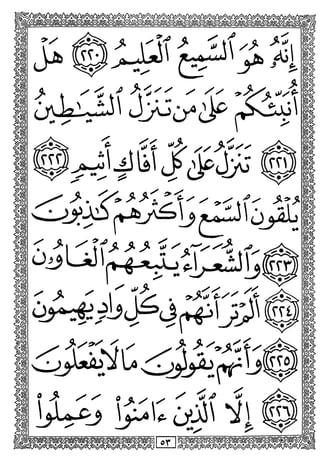 إِنَّهُۥ هُوَ ٱلسَّمِيعُ ٱلْعَلِيمُ ﴿٢٢٠﴾ هَلْ
أُنَبِّئُكُمْ عَلَىٰ مَن تَنَزَّلُ ٱلشَّيَـٰطِينُ
﴿٢٢١﴾ تَنَزَّلُ عَلَىٰ كُلِّ أَفَّاكٍ أَثِيمٍ ﴿٢٢٢﴾
يُلْقُونَ ٱلسَّمْعَ وَأَكْثَرُهُمْ كَـٰذِبُونَ
﴿٢٢٣﴾ وَٱلشُّعَرَآءُ يَتَّبِعُهُمُ ٱلْغَاوُۥنَ
﴿٢٢٤﴾ أَلَمْ تَرَ أَنَّهُمْ فِى كُلِّ وَادٍ يَهِيمُونَ
﴿٢٢٥﴾ وَأَنَّهُمْ يَقُولُونَ مَا لَا يَفْعَلُونَ
﴿٢٢٦﴾ إِلَّا ٱلَّذِينَ ءَامَنُوا۟ وَعَمِلُوا۟
٥٣